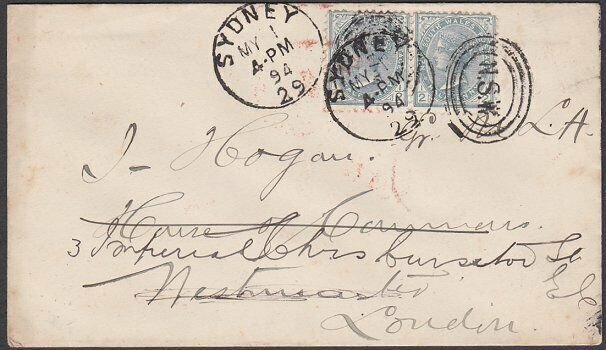 SYDNEY
MY 1
4-PM
94
29
SYDNEY
MY 1
4-PM
94
29
N.S.W.
J- Hogan. M.L.A.
House of Commons.
3 Imperial
Westminster
London.